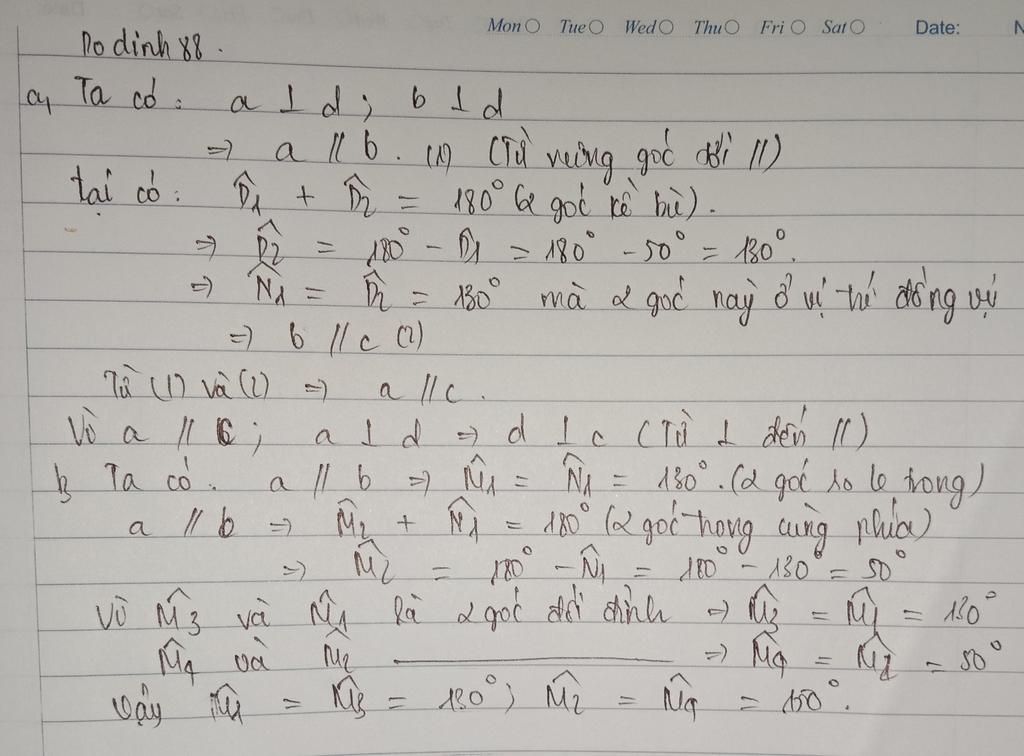 Mon Tue Wed Thu Fri Sat Date:
Do dinh 88.
a, Ta có: a ⊥ d; b ⊥ d
=> a // b. (1) (Từ vuông góc đến //)
Lại có: D̂1 + D̂2 = 180° (2 góc kề bù).
=> D̂2 = 180° - D̂1 = 180° - 50° = 130°.
=> N̂1 = D̂2 = 130° mà 2 góc này ở vị trí đồng vị
=> b // c (2)
Từ (1) và (2) => a // c.
Vì a // c; a ⊥ d => d ⊥ c (Từ ⊥ đến //)
b, Ta có. a // b => M̂1 = N̂1 = 130°. (2 góc so le trong)
a // b => M̂2 + N̂1 = 180° (2 góc trong cùng phía)
=> M̂2 = 180° - N̂1 = 180° - 130° = 50°
Vì M̂3 và M̂1 là 2 góc đối đỉnh => M̂3 = M̂1 = 130°
M̂4 và M̂2 ———— => M̂4 = M̂2 = 50°
Vậy M̂1 = M̂3 = 130°; M̂2 = M̂4 = 150°.